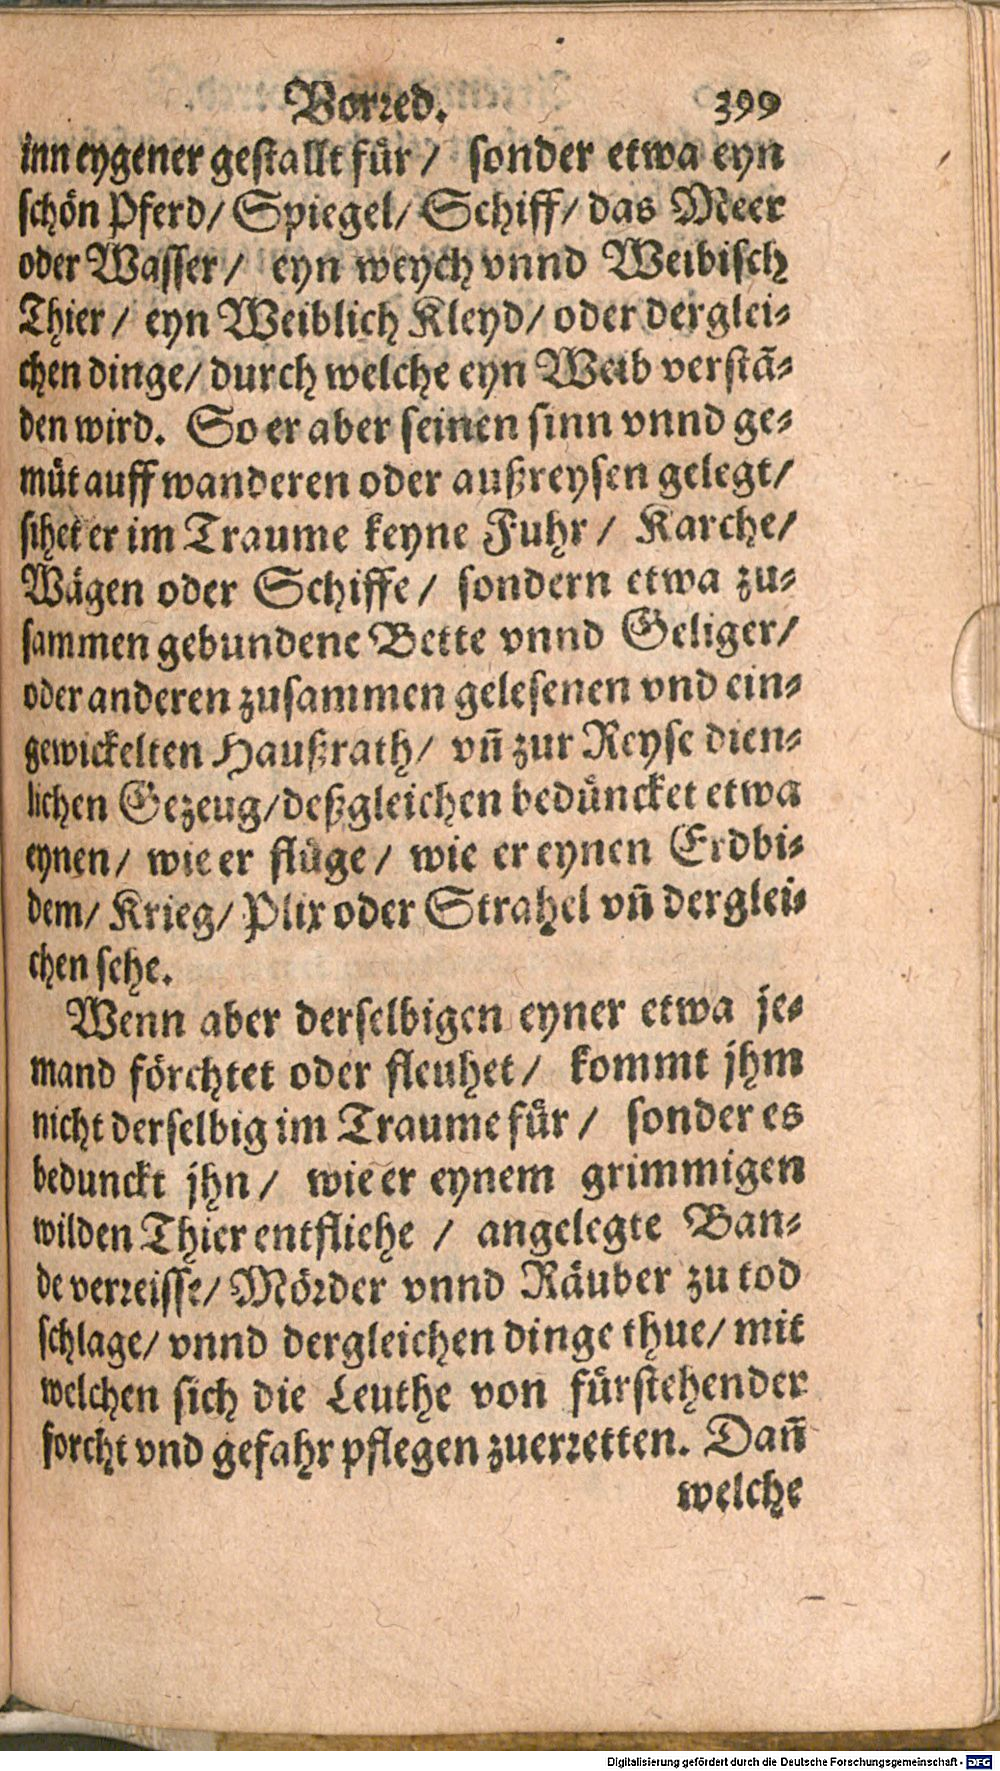 Vorꝛed. 399
inn eygener gestallt für / sonder etwa eyn
schön Pferd/ Spiegel/ Schiff/ das Meer
oder Wasser / eyn weych vnnd Weibisch
Thier / eyn Weiblich Kleyd/ oder derglei⸗
chen dinge/ durch welche eyn Weib verstā⸗
den wird. So er aber seinen sinn vnnd ge⸗
müt auff wanderen oder außreysen gelegt/
sihet er im Traume keyne Fuhr / Karche/
Wägen oder Schiffe / sondern etwa zu⸗
sammen gebundene Bette vnnd Geliger/
oder anderen zusammen gelesenen vnd ein⸗
gewickelten Haußrath/ vn̄ zur Reyse dien⸗
lichen Gezeug/ deßgleichen bedüncket etwa
eynen / wie er flüge / wie er eynen Erdbi⸗
dem/ Krieg/ Plix oder Strahel vn̄ derglei⸗
chen sehe.
Wenn aber derselbigen eyner etwa je⸗
mand förchtet oder fleuhet / kommt jhm
nicht derselbig im Traume für / sonder es
bedunckt jhn / wie er eynem grimmigen
wilden Thier entfliehe / angelegte Ban⸗
de verꝛeisse/ Möꝛder vnnd Räuber zu tod
schlage/ vnnd dergleichen dinge thue/ mit
welchen sich die Leuthe von fürstehender
forcht vnd gefahr pflegen zuerꝛetten. Dan̄
welche
Digitalisierung gefördert durch die Deutsche Forschungsgemeinschaft - DFG